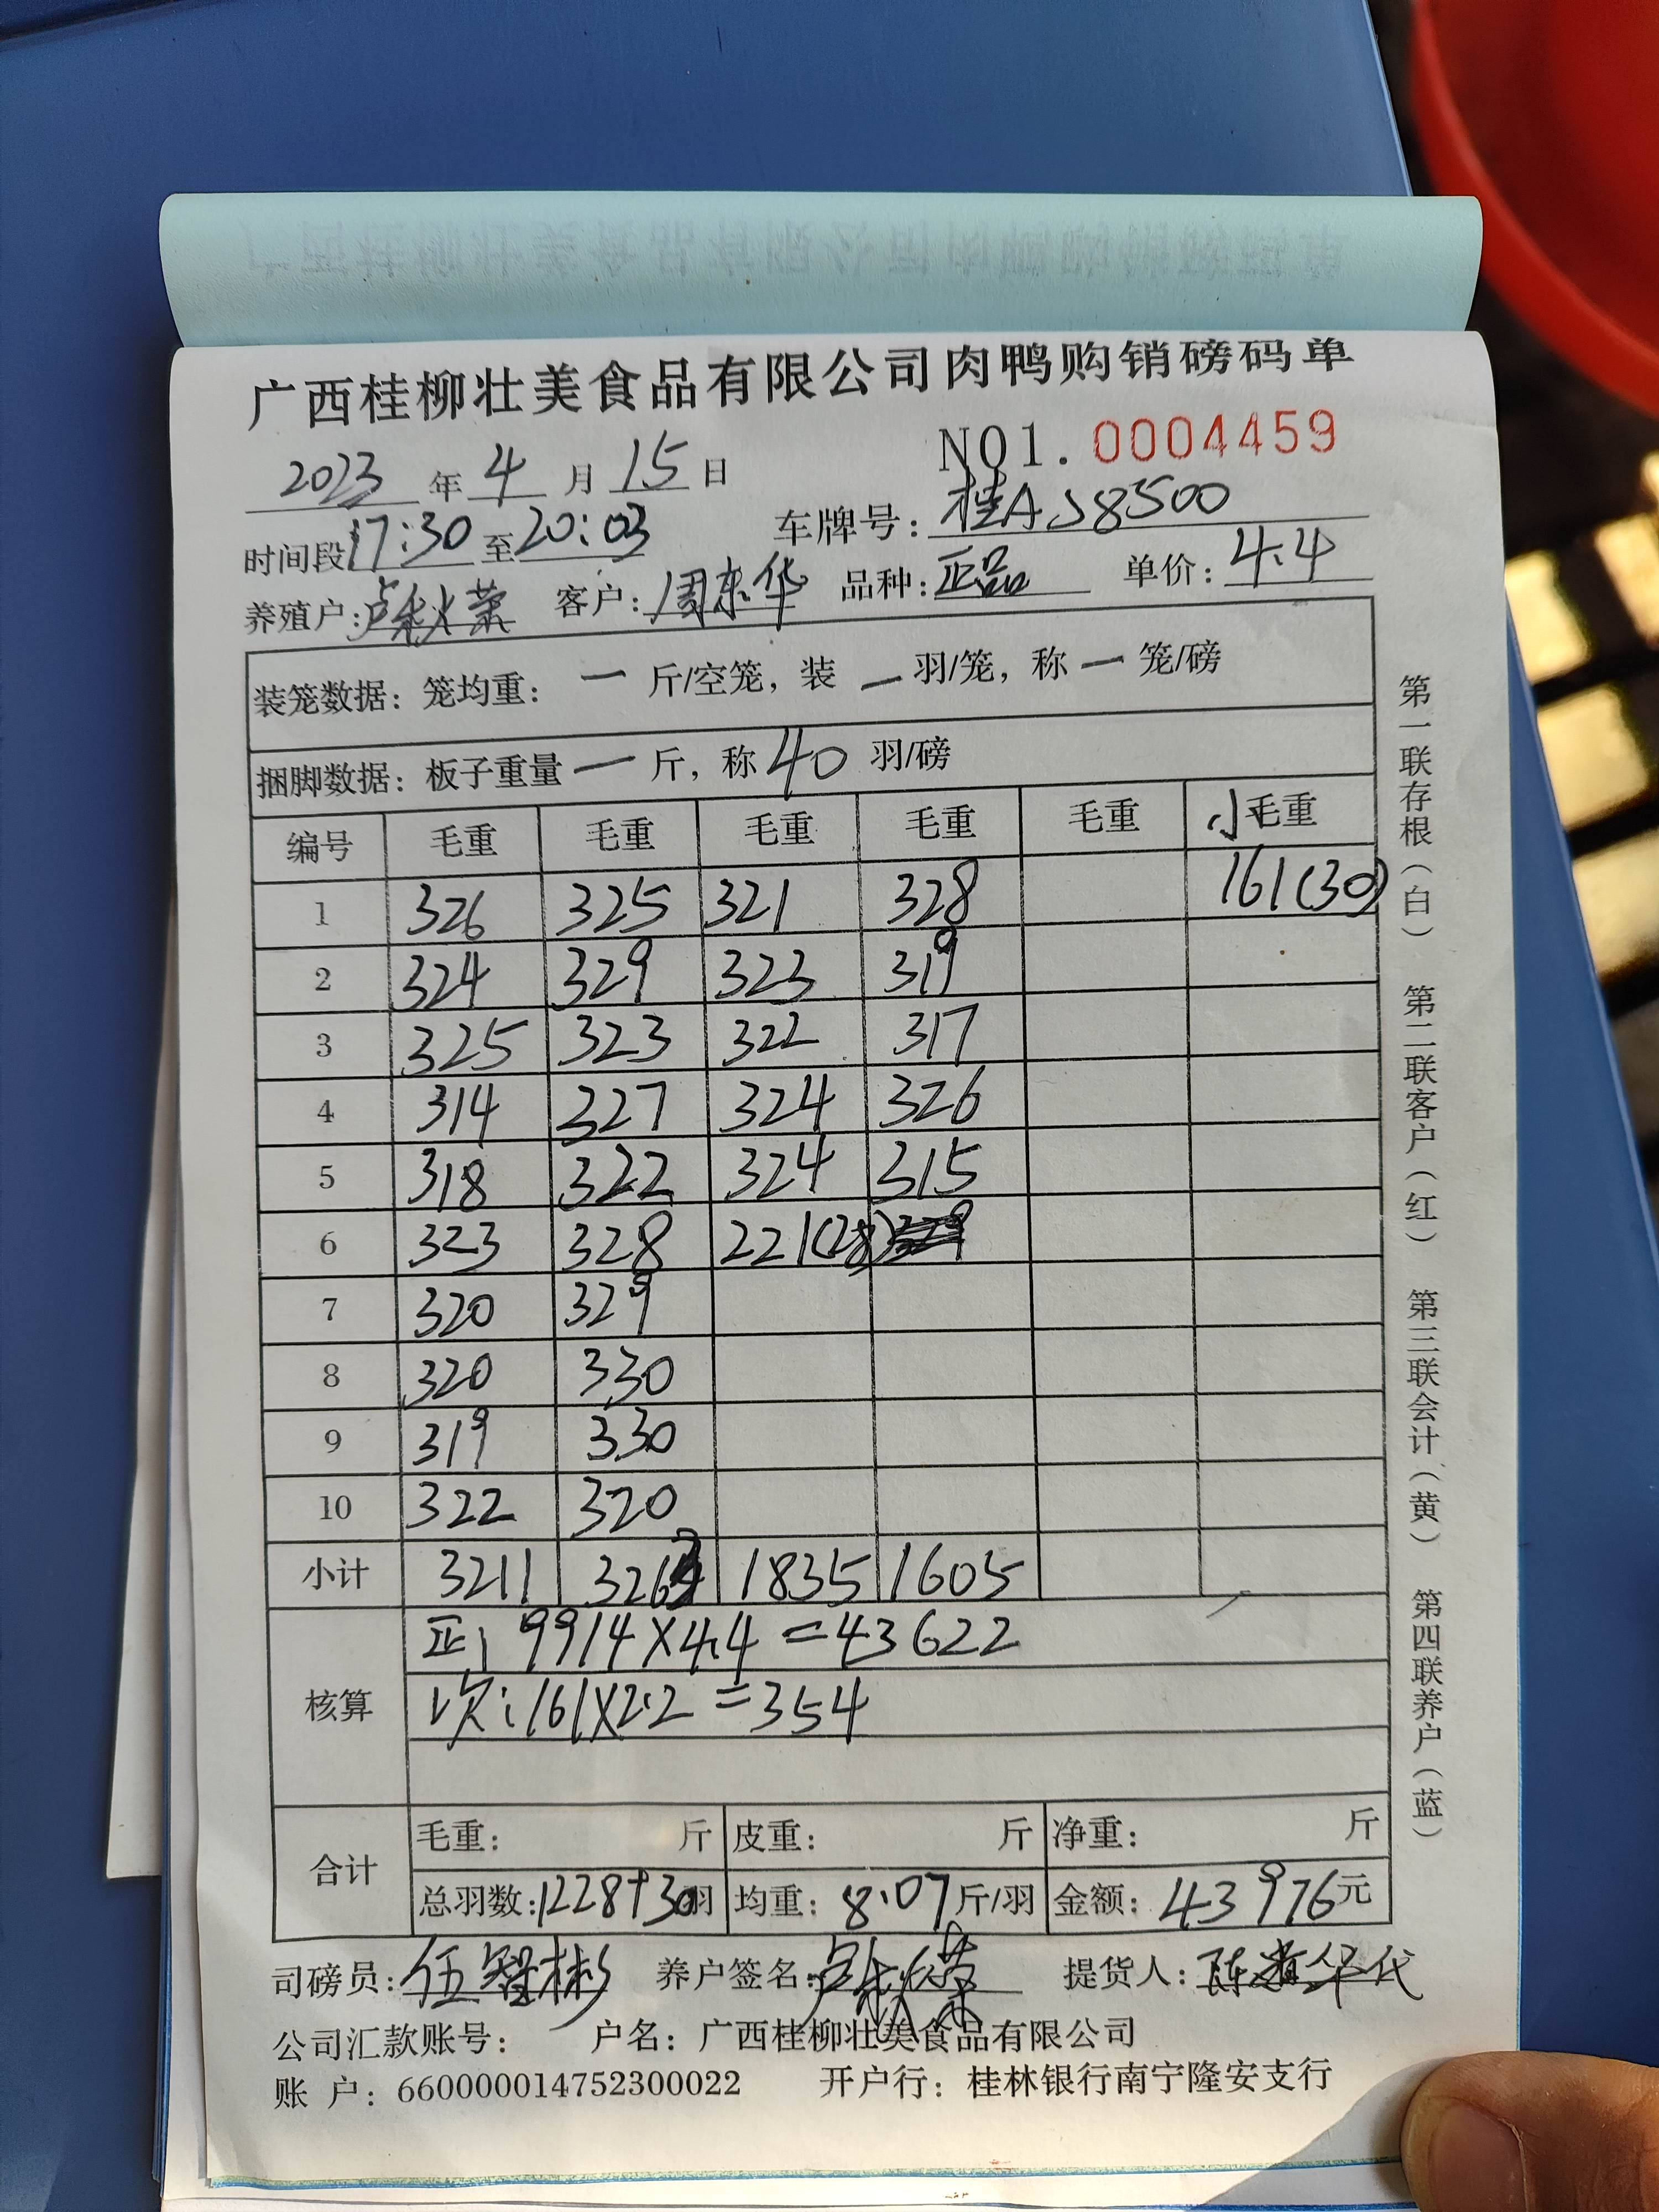 广西桂柳壮美食品有限公司肉鸭购销磅码单
NO1. 0004459
2023 年 4 月 15 日
时间段 17:30 至 20:03 车牌号: 桂AJ8500
养殖户: 卢秋荣 客户: 周东华 品种: 正品 单价: 4.4
装笼数据: 笼均重: 一 斤/空笼, 装 一 羽/笼, 称 一 笼/磅
捆脚数据: 板子重量 一 斤, 称 40 羽/磅
编号 毛重 毛重 毛重 毛重 毛重 小毛重
1 326 325 321 328 161(30)
2 324 329 323 319
3 325 323 322 317
4 314 327 324 326
5 318 322 324 315
6 323 328 221(28)
7 320 329
8 320 330
9 319 330
10 322 320
小计 3211 3263 1835 1605
核算
正: 9914×4.4=43622
次:161×2.2=354
合计
毛重: 斤 皮重: 斤 净重: 斤
总羽数: 1228+30羽 均重: 8.07斤/羽 金额: 43976元
司磅员: 伍智彬 养户签名: 卢秋荣 提货人: 陈 华代
公司汇款账号: 户名: 广西桂柳壮美食品有限公司
账 户: 660000014752300022 开户行: 桂林银行南宁隆安支行
第一联存根(白) 第二联客户(红) 第三联会计(黄) 第四联养户(蓝)